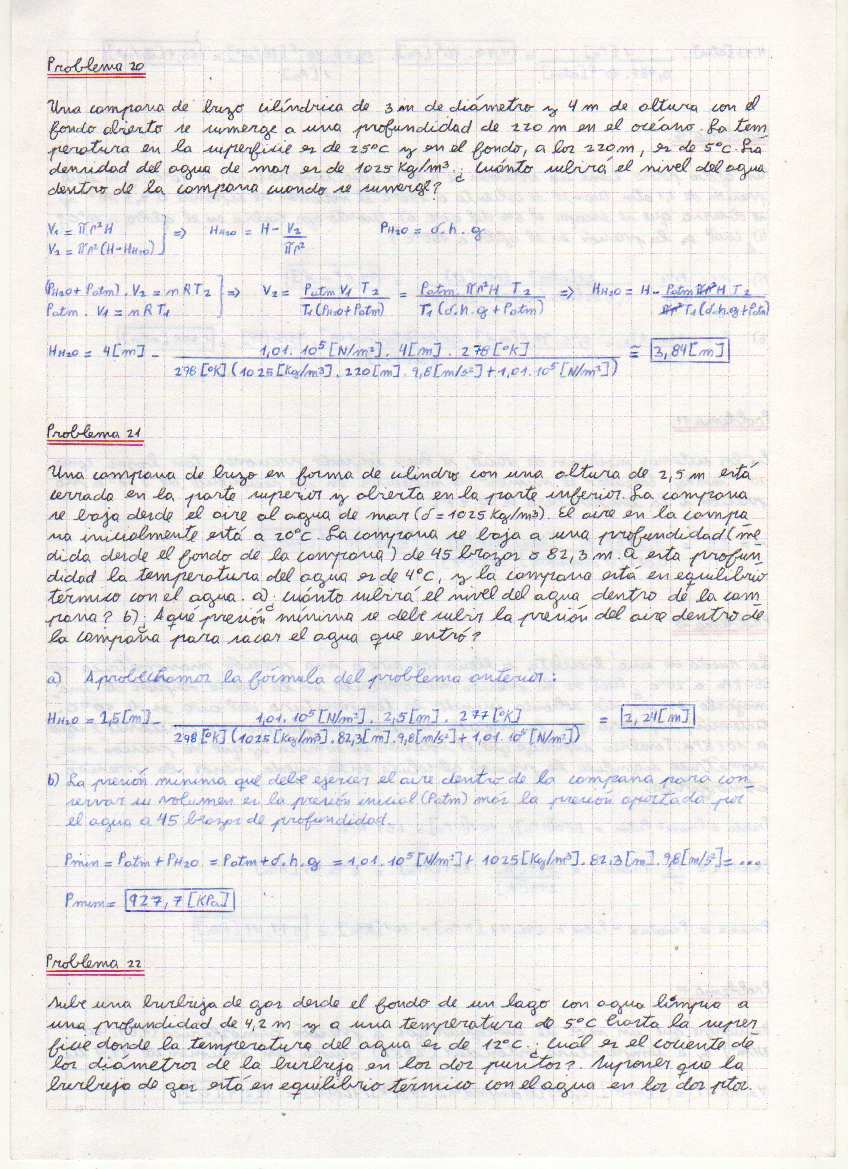 Problema 20
Una campana de buzo cilíndrica de 3 m de diámetro y 4 m de altura con el
fondo abierto se sumerge a una profundidad de 220 m en el océano. La tem
peratura en la superficie es de 25°C y en el fondo, a los 220 m, es de 5°C. La
densidad del agua de mar es de 1025 Kg/m³. ¿Cuánto subirá el nivel del agua
dentro de la campana cuando se sumerge?
V1 = πr²H
V2 = πr²(H-HH2O)] => HH2O = H - V2/πr² PH2O = δ.h.g
(PH2O + Patm). V2 = nRT2
Patm. V1 = nRT1] => V2 = Patm V1 T2/T1(PH2O+Patm) = Patm πr²H T2/T1(δ.h.g+Patm) => HH2O = H - Patm πr²H T2/πr²T1(δ.h.g+Patm)
HH2O = 4[m] - 1,01.10⁵[N/m²]. 4[m]. 278[°K]/298[°K](1025[Kg/m³]. 220[m]. 9,8[m/s²]+1,01.10⁵[N/m²]) ≅ 3,84[m]
Problema 21
Una campana de buzo en forma de cilindro con una altura de 2,5 m está
cerrada en la parte superior y abierta en la parte inferior. La campana
se baja desde el aire al agua de mar (δ=1025 Kg/m3). El aire en la campa
na inicialmente está a 20°C. La campana se baja a una profundidad (me
dida desde el fondo de la campana) de 45 brazas o 82,3 m. A esta profun
didad la temperatura del agua es de 4°C, y la campana está en equilibrio
térmico con el agua. a) ¿cuánto subirá el nivel del agua dentro de la cam
pana? b) ¿A qué presión mínima se debe subir la presión del aire dentro de
la campana para sacar el agua que entró?
a) Aprobechamos la fórmula del problema anterior:
HH2O = 2,5[m] - 1,01.10⁵[N/m²]. 2,5[m]. 277[°K]/298[°K](1025[Kg/m³]. 82,3[m]. 9,8[m/s²]+1,01.10⁵[N/m²]) = 2,24[m]
b) La presión mínima que debe ejercer el aire dentro de la campana para con
servar su volumen es la presión inicial (Patm) más la presión aportada por
el agua a 45 brazas de profundidad.
Pmin = Patm + PH2O = Patm + δ.h.g = 1,01.10⁵[N/m²] + 1025[Kg/m³]. 82,3[m]. 9,8[m/s²] = ...
Pmin = 927,7[KPa]
Problema 22
Sube una burbuja de gas desde el fondo de un lago con agua limpia a
una profundidad de 4,2 m y a una temperatura de 5°C hasta la super
ficie donde la temperatura del agua es de 12°C. ¿Cuál es el cociente de
los diámetros de la burbuja en los dos puntos?. Suponer que la
burbuja de gas está en equilibrio térmico con el agua en los dos ptos.